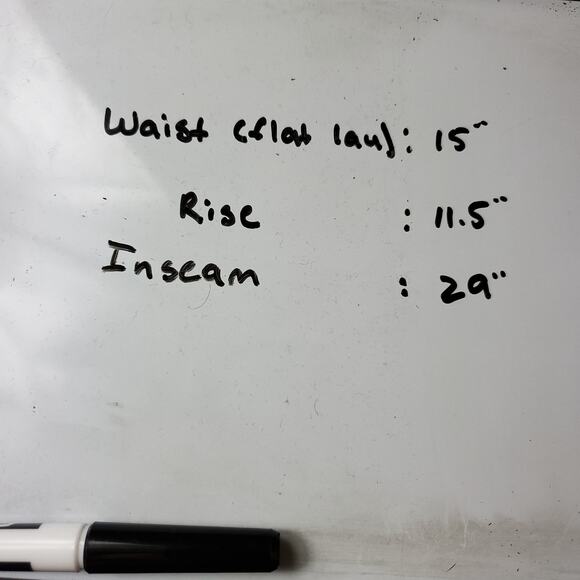 Waist (flat lay): 15"
Rise : 11.5"
Inseam : 29"